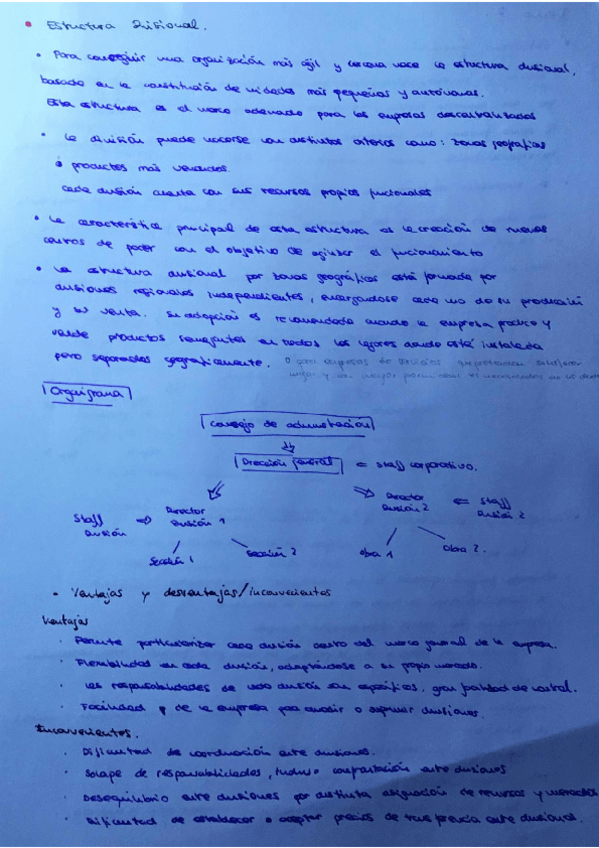 • Estructura Divisional.
• Para conseguir una organización más ágil y cercana nace la estructura divisional,
basada en la constitución de unidades más pequeñas y autónomas.
Esta estructura es el marco adecuado para las empresas descentralizadas
• La división puede hacerse con distintos criterios como: zonas geográficas
o productos más vendidos.
Cada división cuenta con sus recursos propios funcionales
• La característica principal de esta estructura es la creación de nuevos
centros de poder con el objetivo de agilizar el funcionamiento
• La estructura divisional por zonas geográficas está formada por
divisiones regionales independientes, encargandose cada una de su producción
y su venta. Su adopción es recomendada cuando la empresa produce y
vende productos semejantes en todos los lugares donde está instalada
pero separados geográficamente. O para empresas de servicios que pretenden satisfacer
mejor y
Organigrama
Consejo de administración
Dirección general ⇐ Staff corporativo.
Staff División ⇒ Director División 1
Director División 2 ⇐ Staff División 2
Sección 1 Sección 2 Obra 1 Obra 2.
• Ventajas y desventajas/inconvenientes
Ventajas
· Permite particularizar cada división dentro del marco general de la empresa.
· Flexibilidad en cada división, adaptándose a su propio mercado.
· Las responsabilidades de cada división son específicas, gran facilidad de control.
· Facilidad de la empresa para añadir o suprimir divisiones.
Inconvenientes.
· Dificultad de coordinación entre divisiones.
· Solape de responsabilidades, incluso confrontación entre divisiones
· Desequilibrio entre divisiones por distinta asignación de recursos y mercados
· Dificultad de establecer o aceptar precios de transferencia entre divisional.